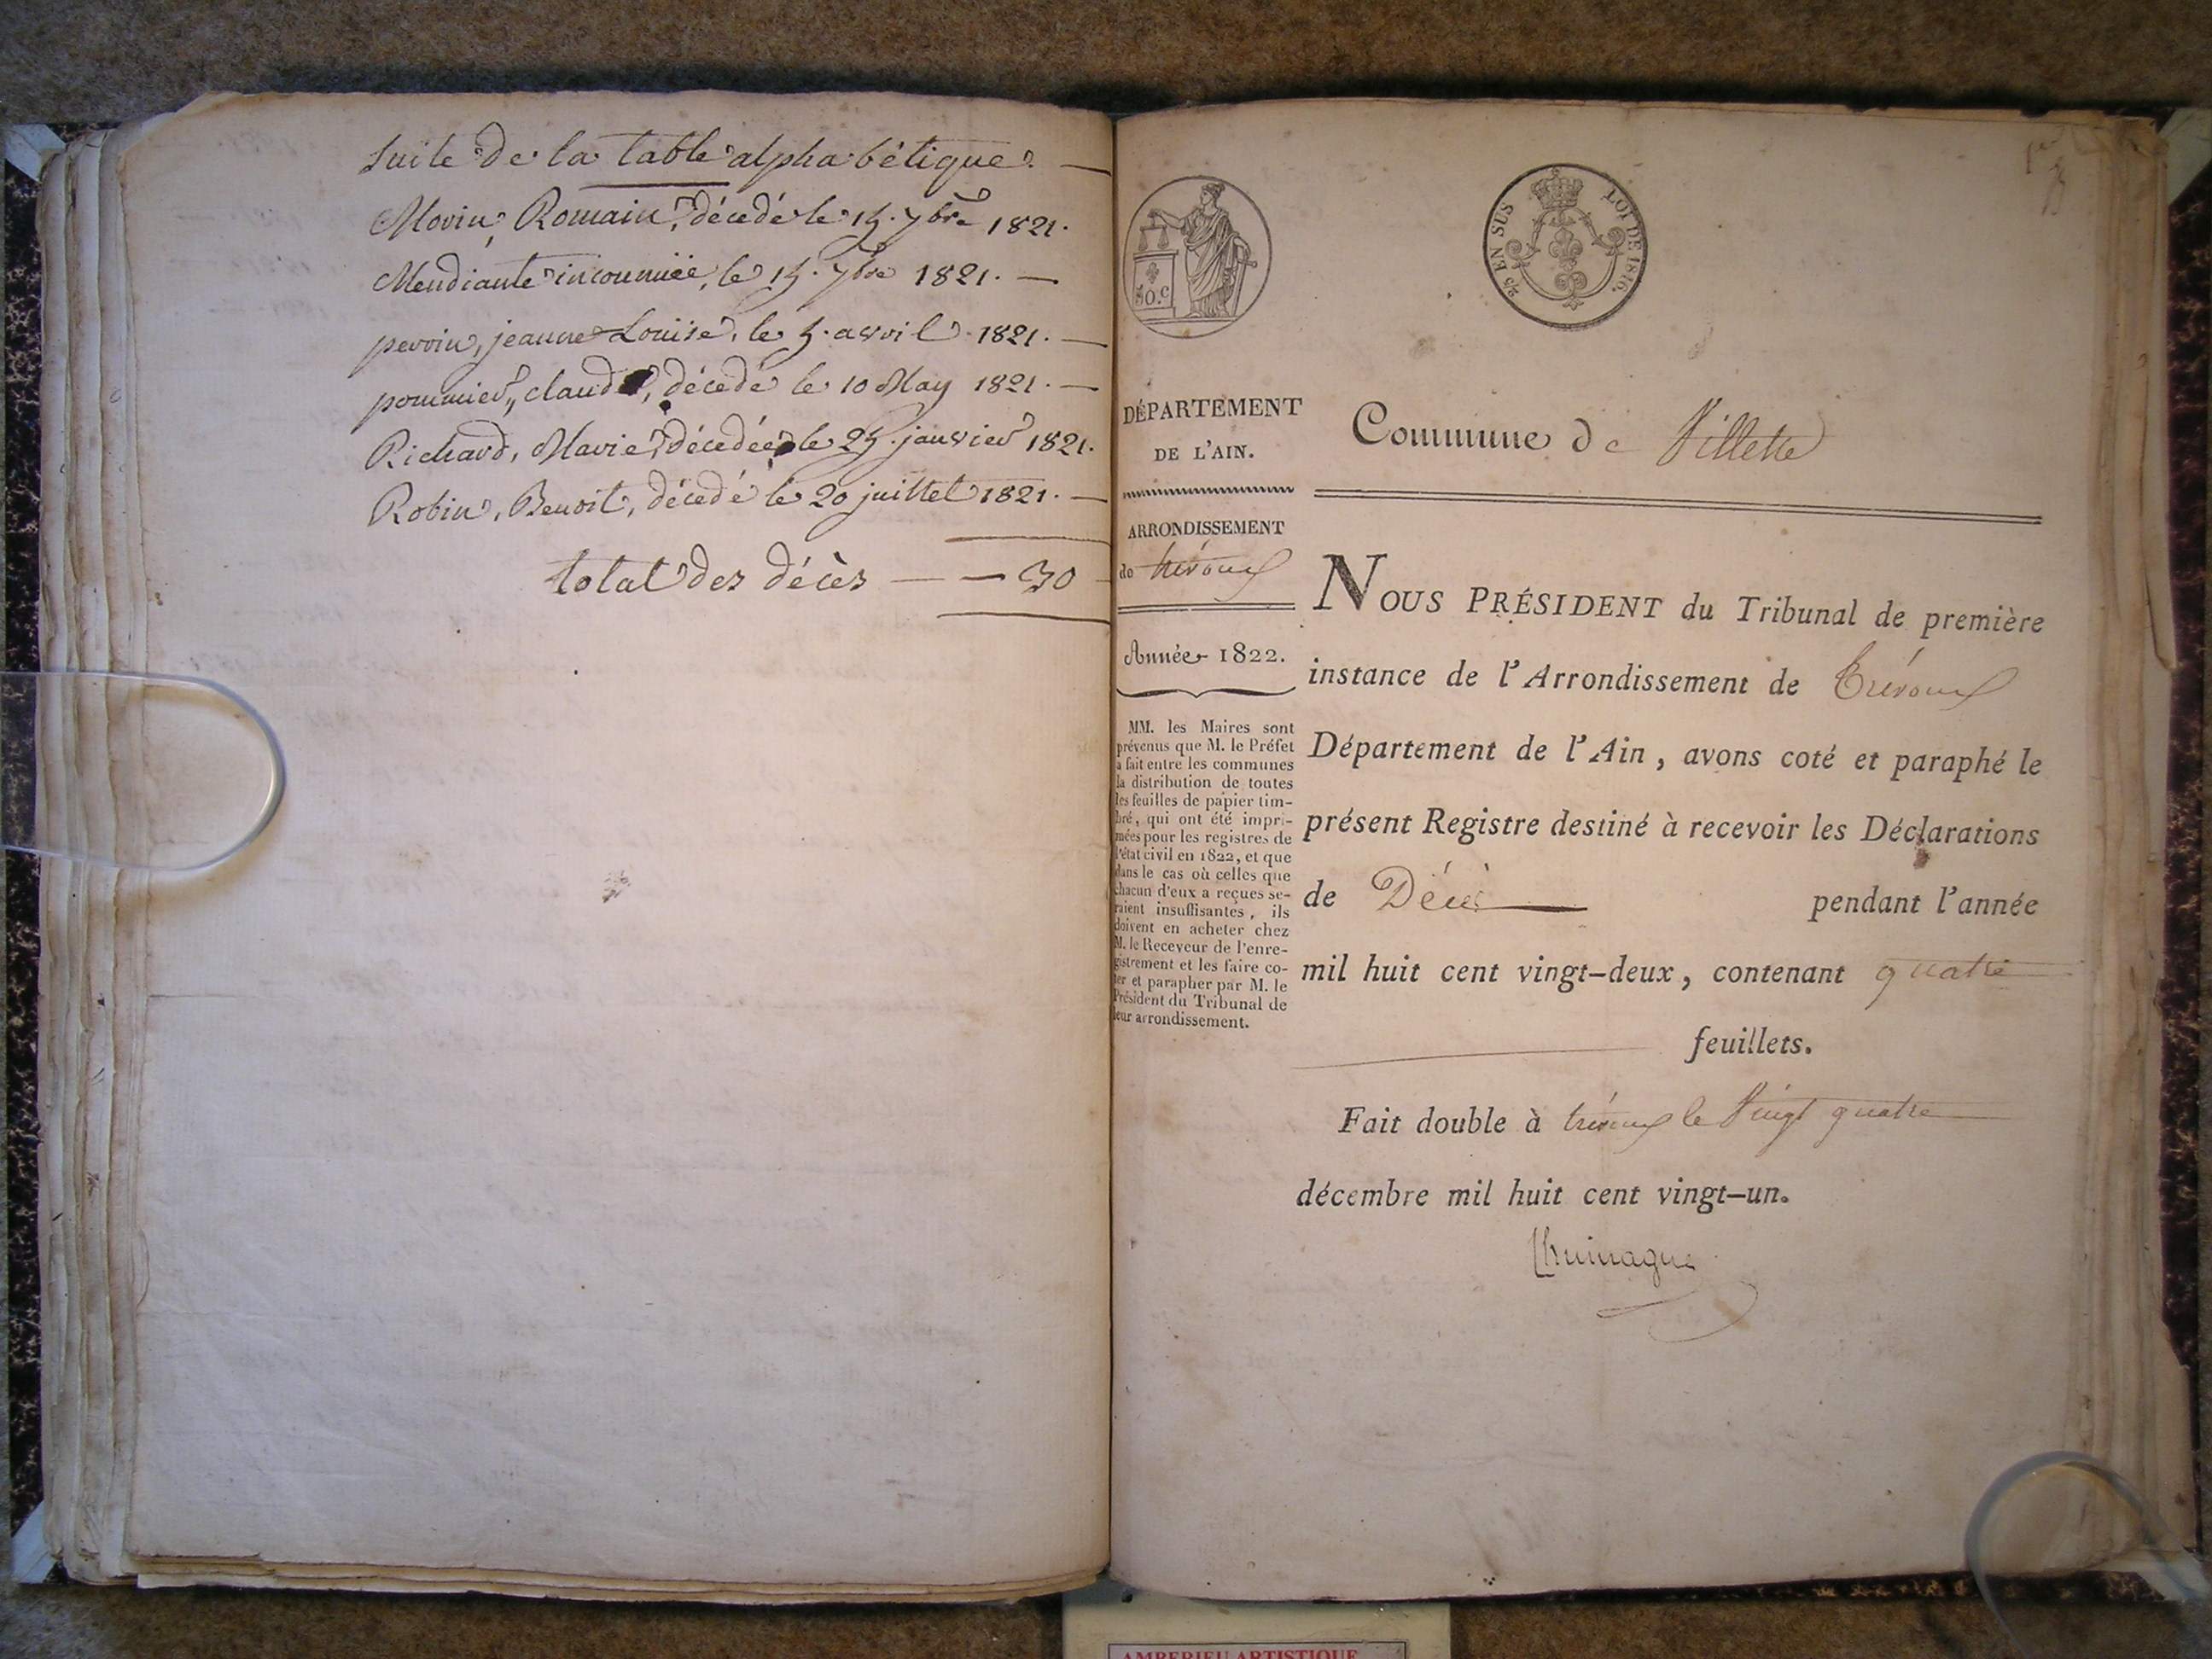 Suite de la table alphabétique.
Morin, Romain, décedé le 15. 7bre 1821.
Mendiante inconnüe, le 15. 7bre 1821.
perroin, jeanne Louise, le 5. avril 1821.
pommier, claude, décedé le 10 May 1821.
Richard, Marie, décedée le 25. janvier 1821.
Robin, Benoit, décedé le 20 juillet 1821.
total des décès — 30
50.c
25 EN SUS
LOI DE 1816.
1er
DÉPARTEMENT
DE L'AIN.
ARRONDISSEMENT
de trévoux
Année 1822.
MM. les Maires sont
prévenus que M. le Préfet
a fait entre les communes
la distribution de toutes
les feuilles de papier tim-
bré, qui ont été impri-
mées pour les registres de
l'état civil en 1822, et que
dans le cas où celles que
chacun d'eux a reçues se-
raient insuffisantes, ils
doivent en acheter chez
M. le Receveur de l'enre-
gistrement et les faire co-
ter et parapher par M. le
Président du Tribunal de
leur arrondissement.
Commune de Villette
NOUS PRÉSIDENT du Tribunal de première
instance de l'Arrondissement de Trévoux
Département de l'Ain, avons coté et paraphé le
présent Registre destiné à recevoir les Déclarations
de Décès pendant l'année
mil huit cent vingt-deux, contenant quatre
feuillets.
Fait double à trévoux le Vingt quatre
décembre mil huit cent vingt-un.
AMBERIEU ARTISTIQUE